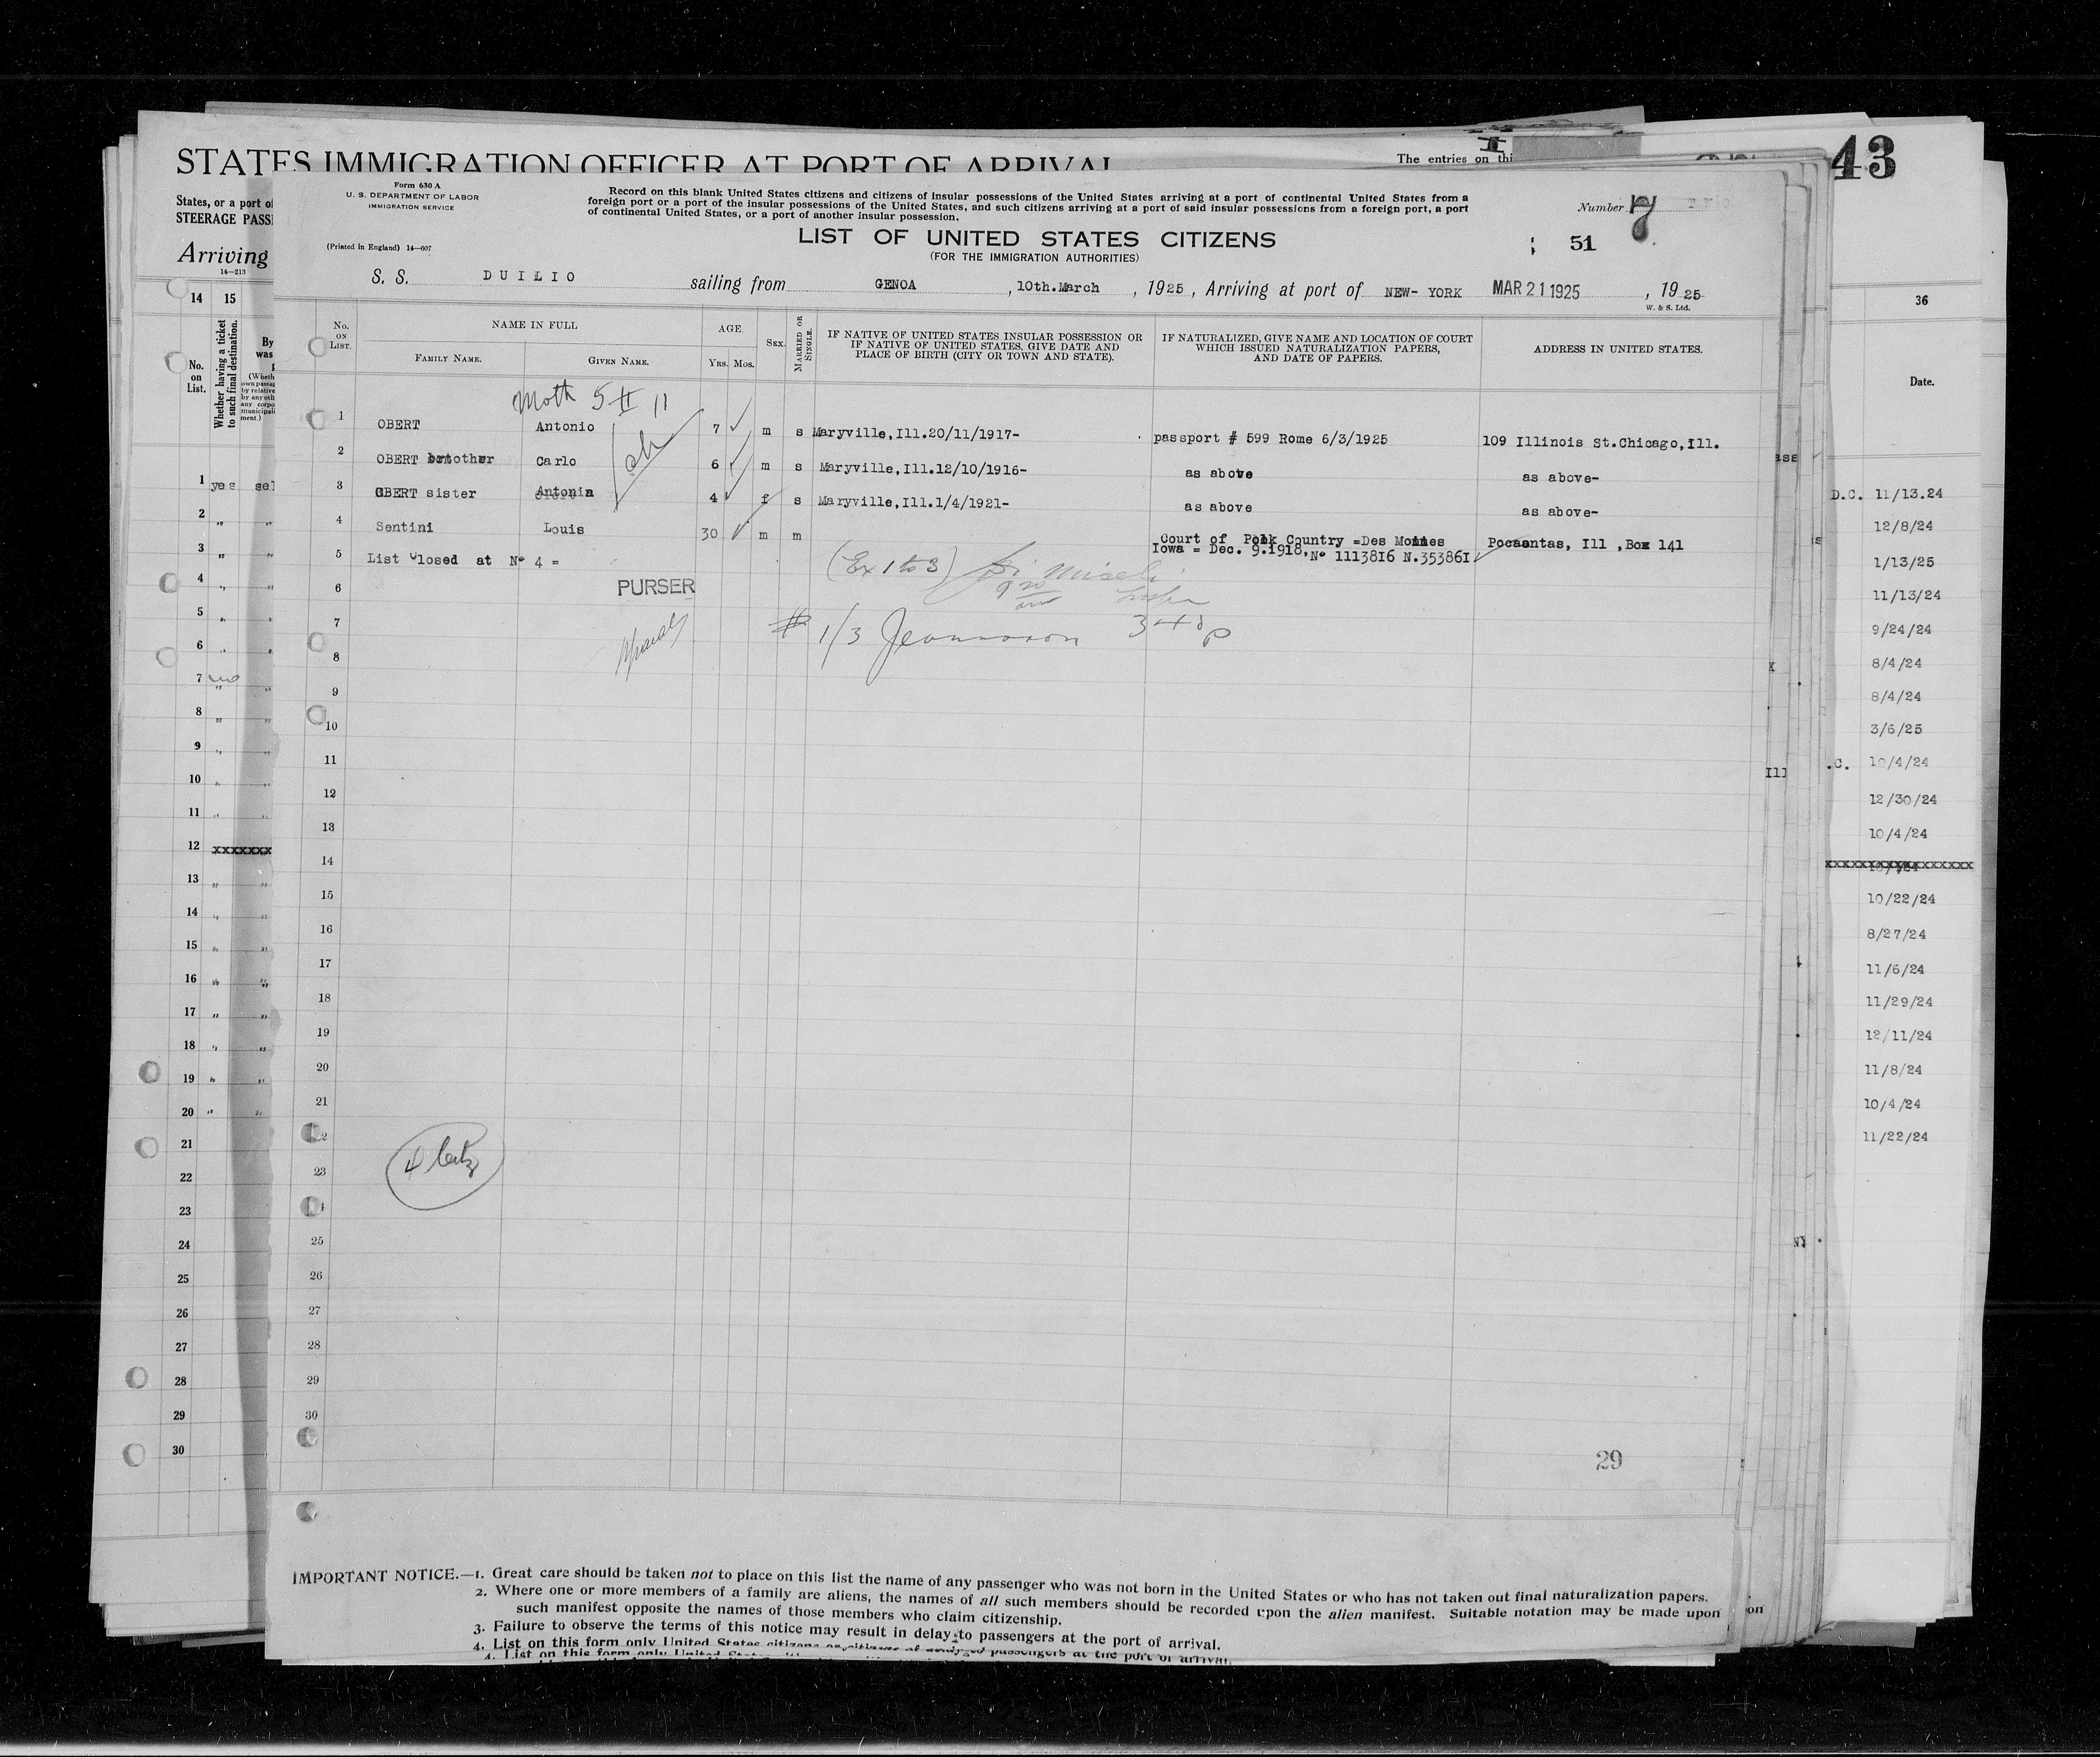 43
STATES IMMIGRATION OFFICER AT PORT OF ARRIVAL
The entries on thi
States, or a port of
STEERAGE PASS
Arriving
14—213
Form 630 A
U. S. DEPARTMENT OF LABOR
IMMIGRATION SERVICE
(Printed in England) 14—607
Record on this blank United States citizens and citizens of insular possessions of the United States arriving at a port of continental United States from a
foreign port or a port of the insular possessions of the United States, and such citizens arriving at a port of said insular possessions from a foreign port, a port
of continental United States, or a port of another insular possession.
Number 7
LIST OF UNITED STATES CITIZENS
51
(FOR THE IMMIGRATION AUTHORITIES)
S. S. DUILIO sailing from GENOA, 10th.March, 1925, Arriving at port of NEW- YORK MAR 21 1925, 1925
W. & S. Ltd.
No. on List.
NAME IN FULL
Family Name. Given Name.
AGE.
Yrs. Mos.
Sex.
Married or Single.
IF NATIVE OF UNITED STATES INSULAR POSSESSION OR
IF NATIVE OF UNITED STATES, GIVE DATE AND
PLACE OF BIRTH (CITY OR TOWN AND STATE).
IF NATURALIZED, GIVE NAME AND LOCATION OF COURT
WHICH ISSUED NATURALIZATION PAPERS,
AND DATE OF PAPERS.
ADDRESS IN UNITED STATES.
Moth 5 II 11
1 OBERT Antonio 7 m s Maryville,Ill.20/11/1917- passport # 599 Rome 6/3/1925 109 Illinois St.Chicago,Ill.
2 OBERT brother Carlo 6 m s Maryville,Ill.12/10/1916- as above as above-
3 OBERT sister Antonia 4 f s Maryville,Ill.1/4/1921- as above as above-
4 Sentini Louis 30 m m Court of Polk Country =Des Moines
Iowa = Dec. 9.1918, No 1113816 N.353861 Pocaontas, Ill ,Box 141
5 List closed at No 4 =
(Ex 1 to 3)
6 PURSER
7
# 1/3
8
9
10
11
12
13
14
15
16
17
18
19
20
21
22
23
4
25
26
27
28
29
30
29
IMPORTANT NOTICE.—1. Great care should be taken not to place on this list the name of any passenger who was not born in the United States or who has not taken out final naturalization papers.
2. Where one or more members of a family are aliens, the names of all such members should be recorded upon the alien manifest. Suitable notation may be made upon
such manifest opposite the names of those members who claim citizenship.
3. Failure to observe the terms of this notice may result in delay to passengers at the port of arrival.
4. List on this form only United States citizens
4. List on this form only United
14 15
No. on List.
Whether having a ticket to such final destination.
By
was
1 yes sel
2 " "
3 " "
4 " "
5 " "
6 " "
7 no "
8 " "
9 " "
10 " "
11 " "
12 xxxxxxx
13 " "
14 " "
15 " "
16 " "
17 " "
18 " "
19 " "
20 " "
21
22
23
24
25
26
27
28
29
30
36
Date.
D.C. 11/13.24
12/8/24
1/13/25
11/13/24
9/24/24
8/4/24
8/4/24
3/6/25
.C. 10/4/24
12/30/24
10/4/24
xxxxxxxxxxxxxxxxxxx
10/22/24
8/27/24
11/6/24
11/29/24
12/11/24
11/8/24
10/4/24
11/22/24